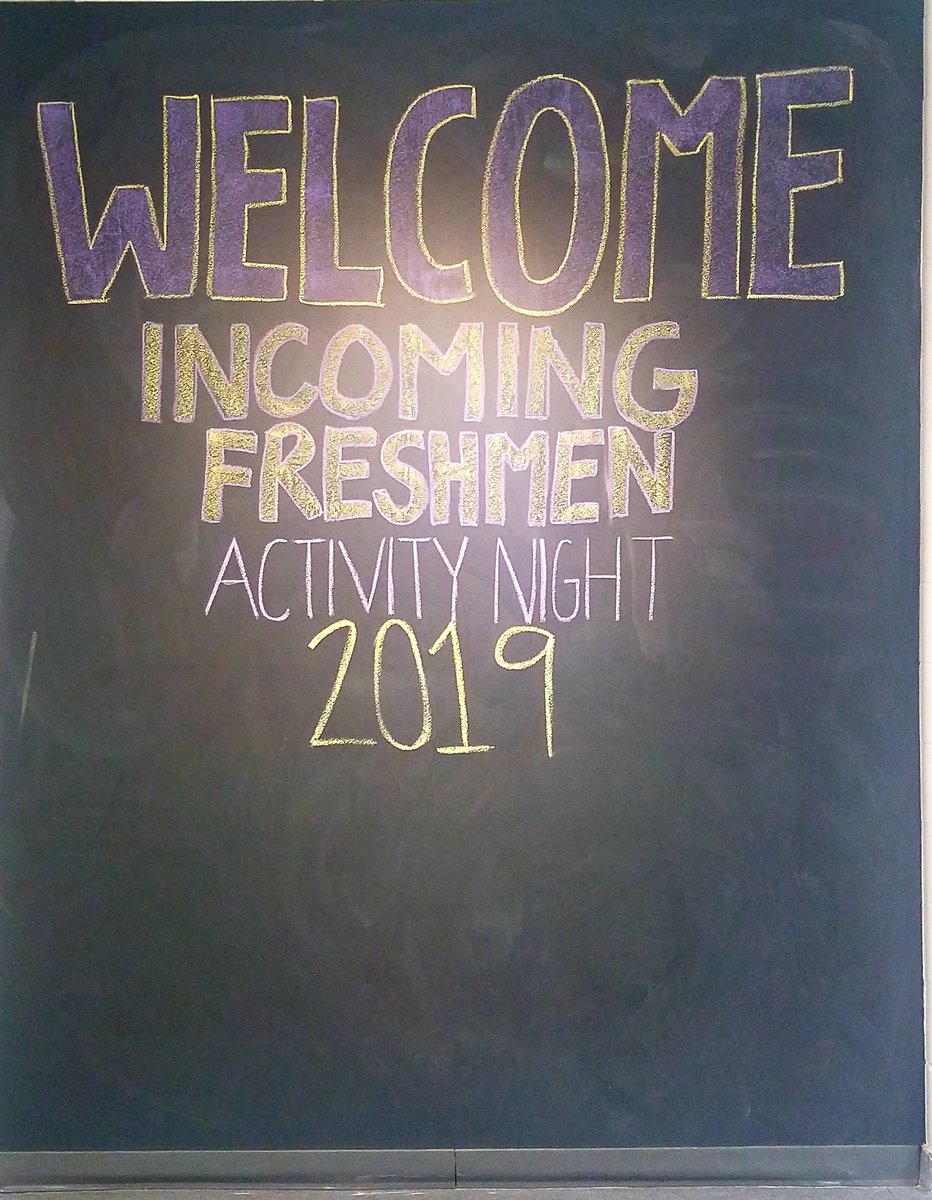 WELCOME
INCOMING
FRESHMEN
ACTIVITY NIGHT
2019